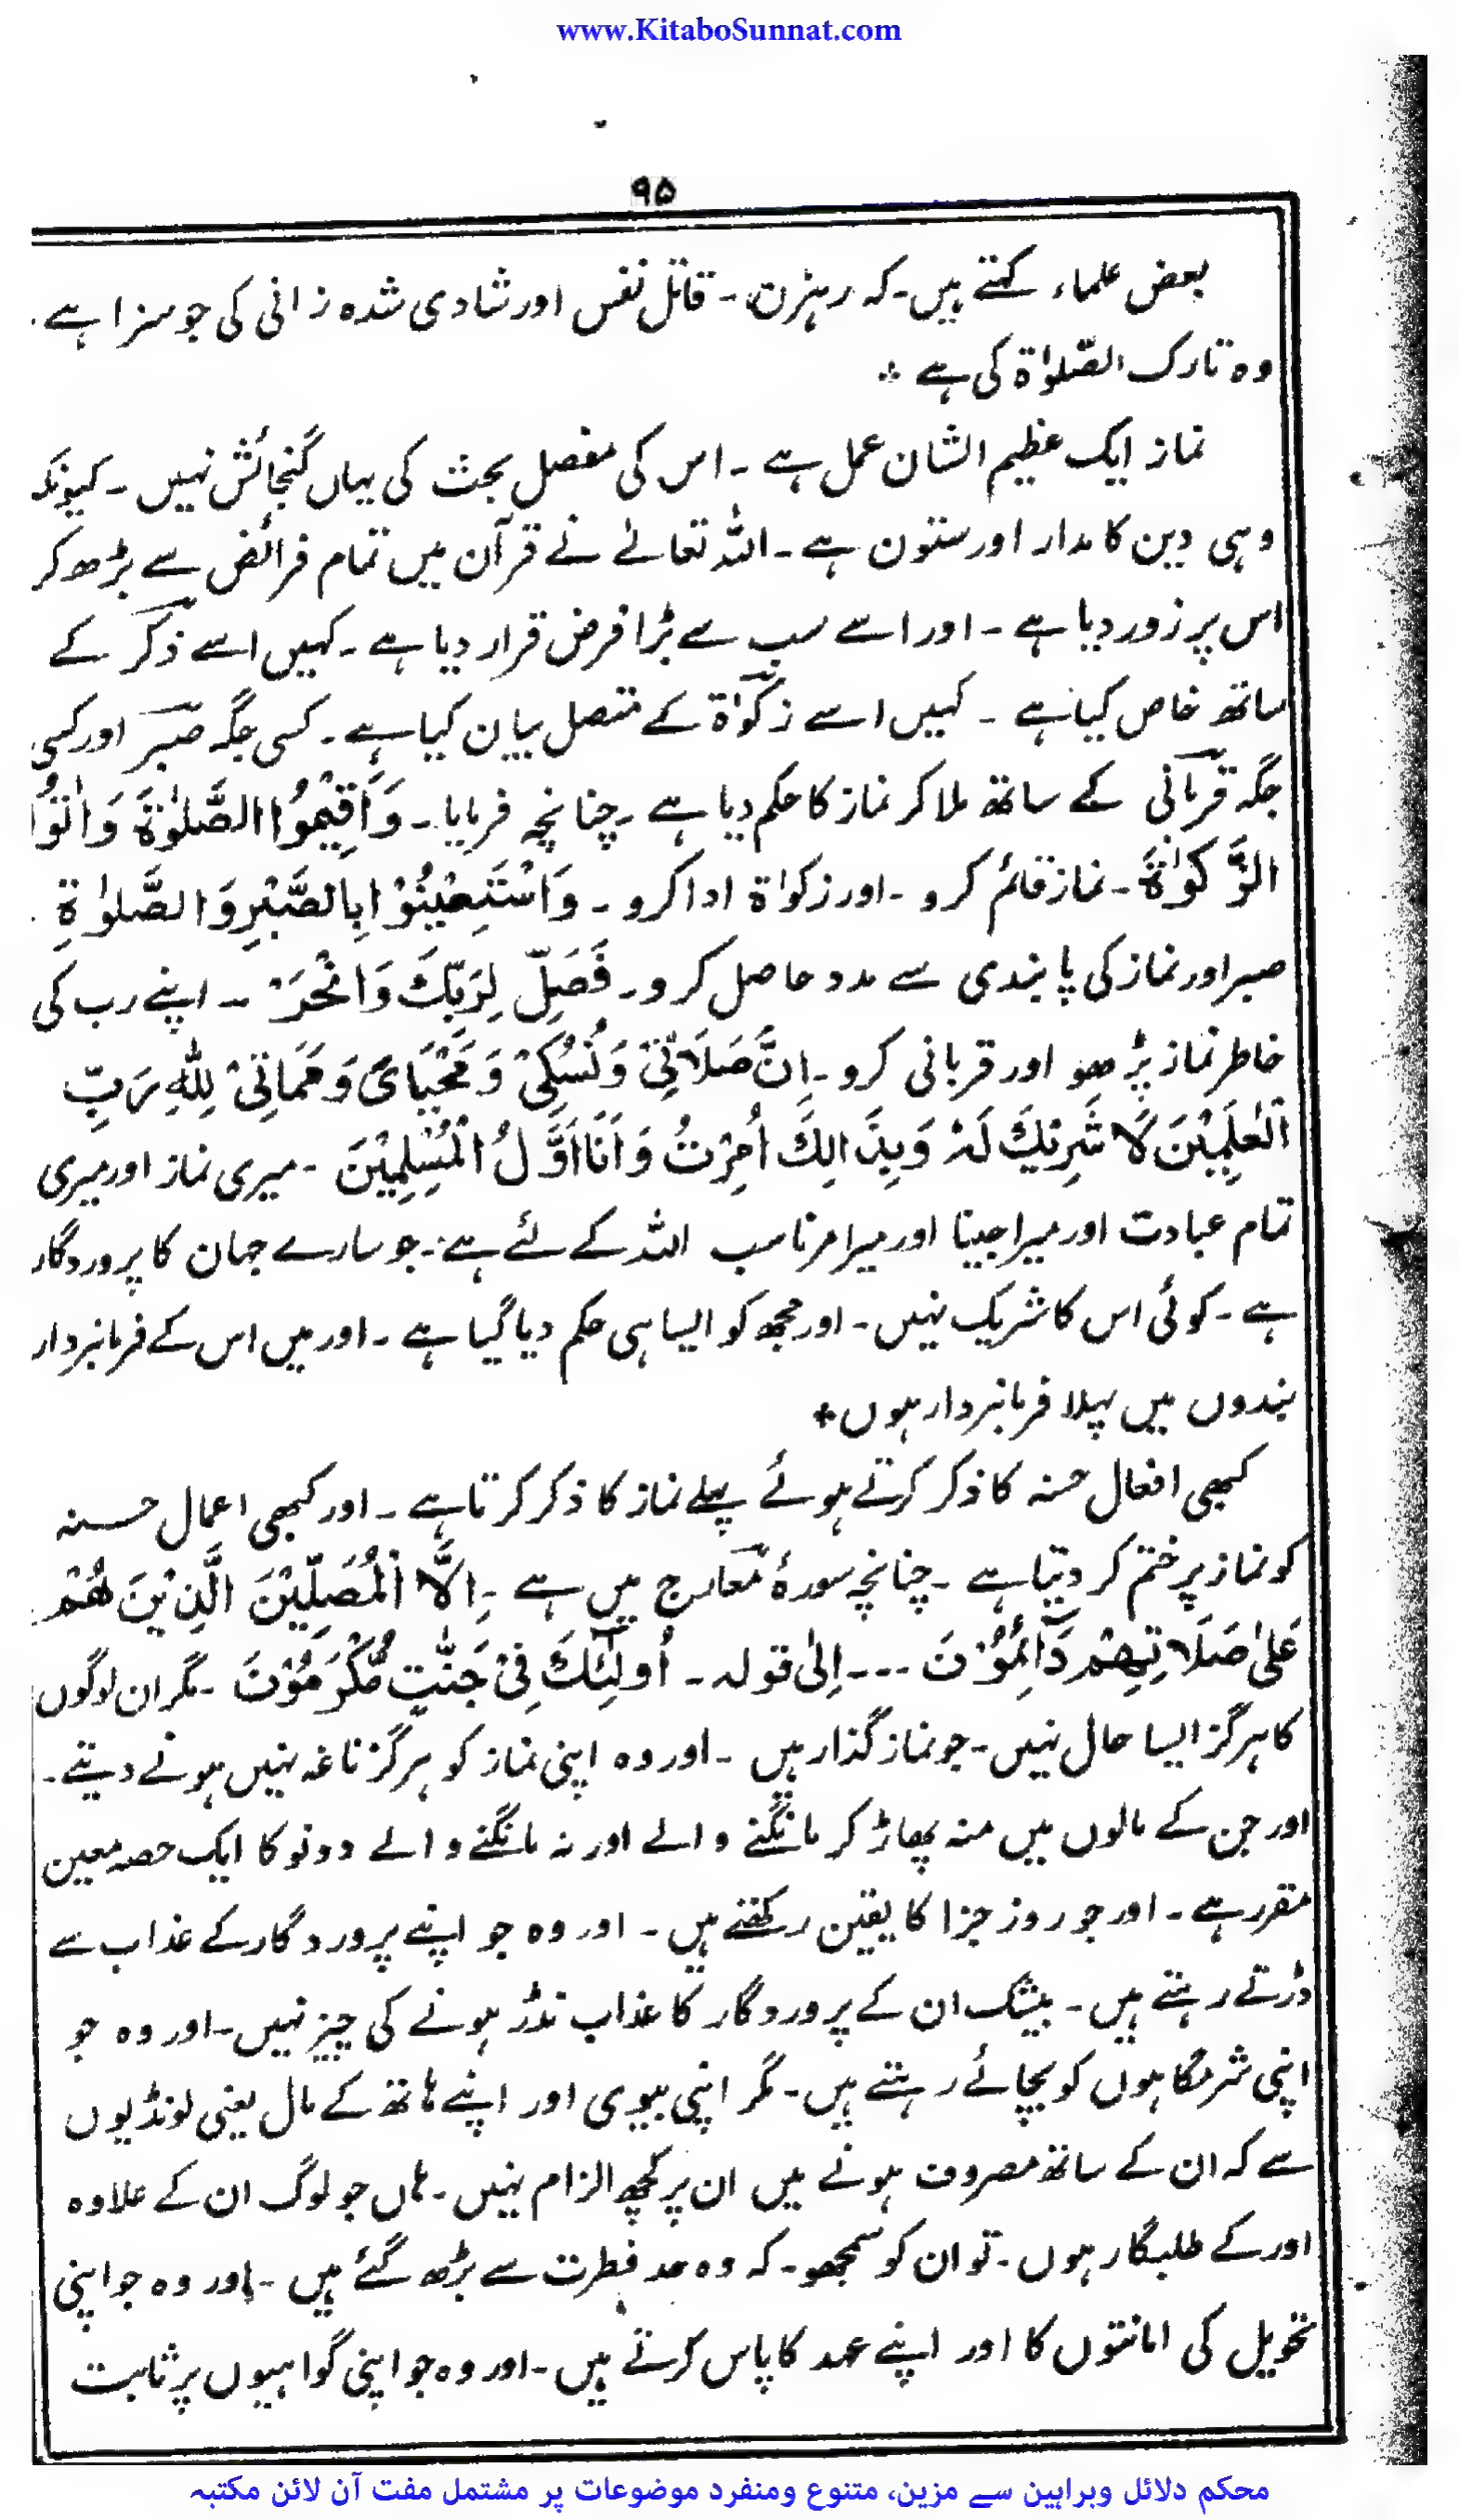 www.KitaboSunnat.com
۹۵
بعض علماء کہتے ہیں۔کہ رہزن۔ قاتل نفس اور شادی شدہ زانی کی جو سزا ہے۔
وہ تارک الصّلوٰۃ کی ہے ÷
نماز ایک عظیم الشان عمل ہے۔ اس کی مفصل بحث کی یہاں گنجائش نہیں۔ کیونکہ
وہی دین کا مدار اور ستون ہے۔ اللہ تعالےٰ نے قرآن میں تمام فرائض سے بڑھ کر
اس پر زور دیا ہے۔ اور اسے سب سے بڑا فرض قرار دیا ہے۔ کہیں اسے ذکر کے
ساتھ خاص کیا ہے۔ کہیں اسے زکوٰۃ کے متصل بیان کیا ہے۔ کسی جگہ صبر اور کسی
جگہ قربانی کے ساتھ ملا کر نماز کا حکم دیا ہے۔ چنانچہ فرمایا۔ وَاَقِیْمُوا الصَّلٰوۃَ وَاٰتُوا
الزَّکٰوۃَ۔ نماز قائم کرو۔ اور زکواۃ ادا کرو۔ وَاسْتَعِیْنُوْا بِالصَّبْرِ وَالصَّلٰوۃِ۔
صبر اور نماز کی پابندی سے مدد حاصل کرو۔ فَصَلِّ لِرَبِّکَ وَانْحَرْ۔ اپنے رب کی
خاطر نماز پڑھو اور قربانی کرو۔ اِنَّ صَلَاتِیْ وَنُسُکِیْ وَمَحْیَایَ وَمَمَاتِیْ لِلّٰہِ رَبِّ
الْعٰلَمِیْنَ لَا شَرِیْکَ لَہٗ وَبِذَالِکَ اُمِرْتُ وَاَنَا اَوَّلُ الْمُسْلِمِیْنَ۔ میری نماز اور میری
تمام عبادت اور میرا جینا اور میرا مرنا سب اللہ کے لئے ہے۔ جو سارے جہان کا پروردگار
ہے۔ کوئی اس کا شریک نہیں۔ اور مجھ کو ایسا ہی حکم دیا گیا ہے۔ اور میں اس کے فرمانبردار
بندوں میں پہلا فرمانبردار ہوں+
کبھی افعال حسنہ کا ذکر کرتے ہوئے پہلے نماز کا ذکر کرتا ہے۔ اور کبھی اعمال حسنہ
کو نماز پر ختم کر دیتا ہے۔ چنانچہ سورۂ معارج میں ہے۔ اِلَّا الْمُصَلِّیْنَ الَّذِیْنَ ھُمْ
عَلٰی صَلَاتِھِمْ دَآئِمُوْنَ ۔۔۔ اِلٰی قولہ۔ اُولٰٓئِکَ فِیْ جَنّٰتٍ مُّکْرَمُوْنَ۔ مگر ان لوگوں
کا ہرگز ایسا حال نہیں۔ جو نماز گذار ہیں۔ اور وہ اپنی نماز کو ہرگز ناغہ نہیں ہونے دیتے۔
اور جن کے مالوں میں منہ پھاڑ کر مانگنے والے اور نہ مانگنے والے دونو کا ایک حصہ معین
مقرر ہے۔ اور جو روز جزا کا یقین رکھتے ہیں۔ اور وہ جو اپنے پروردگار کے عذاب سے
ڈرتے رہتے ہیں۔ بیشک ان کے پروردگار کا عذاب نڈر ہونے کی چیز نہیں۔ اور وہ جو
اپنی شرمگاہوں کو بچائے رہتے ہیں۔ مگر اپنی بیوی اور اپنے ہاتھ کے مال یعنی لونڈیوں
سے کہ ان کے ساتھ مصروف ہونے میں ان پر کچھ الزام نہیں۔ ہاں جو لوگ ان کے علاوہ
اور کے طلبگار ہوں۔ تو ان کو سمجھو۔ کہ وہ حد فطرت سے بڑھ گئے ہیں۔ اور وہ جو اپنی
تحویل کی امانتوں کا اور اپنے عہد کا پاس کرتے ہیں۔ اور وہ جو اپنی گواہیوں پر ثابت
محکم دلائل وبراہین سے مزین، متنوع ومنفرد موضوعات پر مشتمل مفت آن لائن مکتبہ